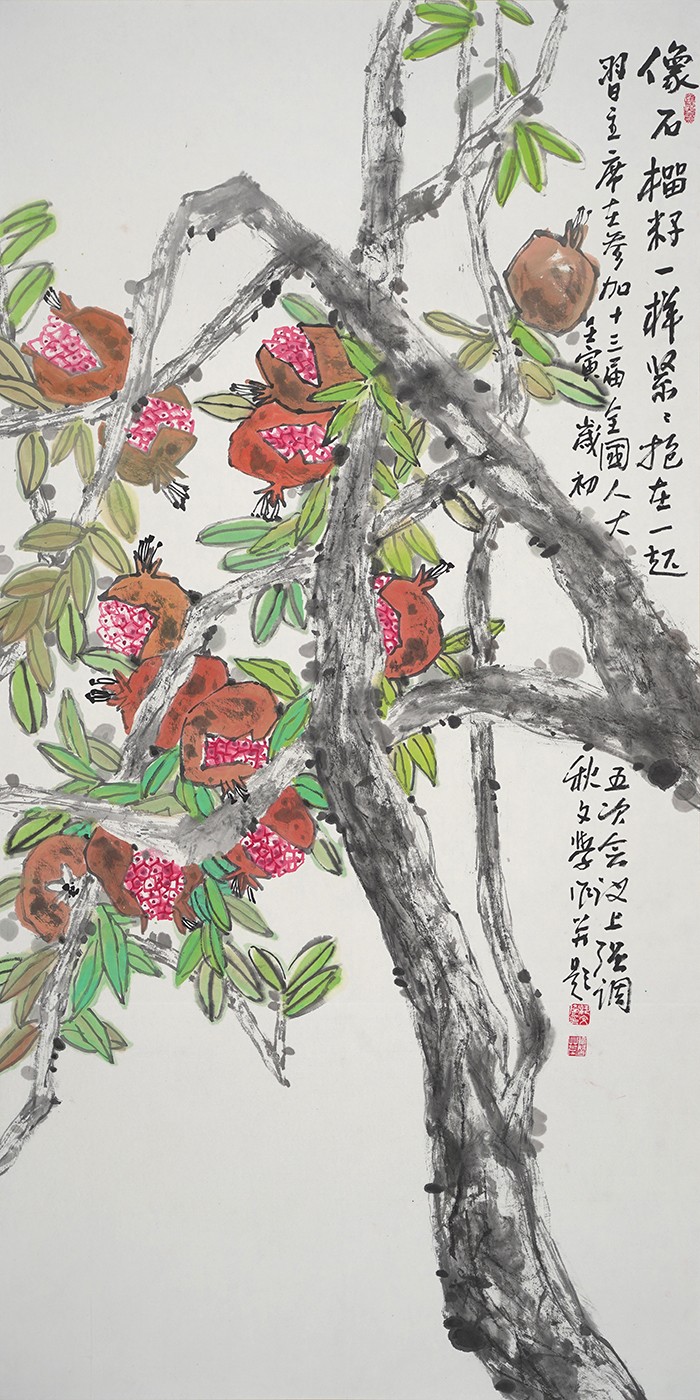 像石榴籽一样紧々抱在一起
習主席在参加十三届全國人大
五次会议上强调
壬寅歲初
秋文學画并题